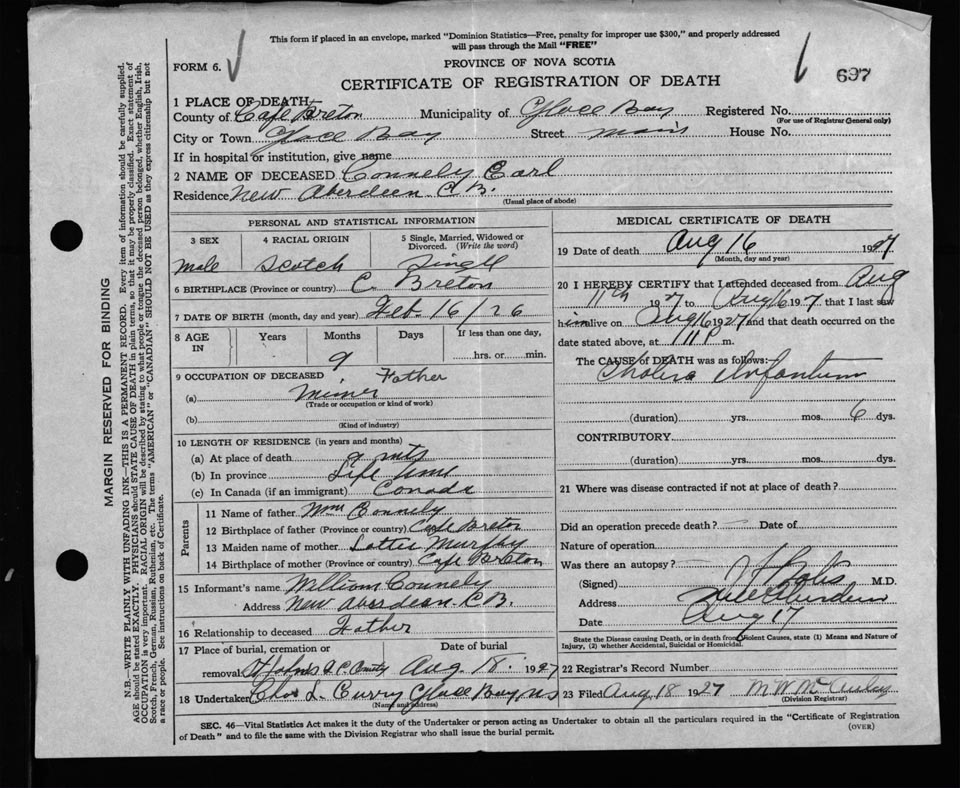 This form if placed in an envelope, marked "Dominion Statistics—Free, penalty for improper use $300," and properly addressed
will pass through the Mail "FREE"
FORM 6.
PROVINCE OF NOVA SCOTIA
CERTIFICATE OF REGISTRATION OF DEATH
697
1 PLACE OF DEATH
County of Cape Breton Municipality of Glace Bay Registered No.
(For use of Registrar General only)
City or Town Glace Bay Street Main House No.
If in hospital or institution, give name
2 NAME OF DECEASED Connely Earl
Residence New Aberdeen C.B.
(Usual place of abode)
PERSONAL AND STATISTICAL INFORMATION
3 SEX 4 RACIAL ORIGIN 5 Single, Married, Widowed or Divorced. (Write the word)
male Scotch Singll
6 BIRTHPLACE (Province or country) C. Breton
7 DATE OF BIRTH (month, day and year) Feb. 16/26
8 AGE IN Years Months Days If less than one day,
9 hrs. or min.
9 OCCUPATION OF DECEASED Father
(a) Miner
(Trade or occupation or kind of work)
(b)
(Kind of industry)
10 LENGTH OF RESIDENCE (in years and months)
(a) At place of death 9 mts
(b) In province Life time
(c) In Canada (if an immigrant) Canada
Parents
11 Name of father Wm Connely
12 Birthplace of father (Province or country) Cape Breton
13 Maiden name of mother Lottie Murphy
14 Birthplace of mother (Province or country) Cape Breton
15 Informant's name William Connely
Address New Aberdeen C.B.
16 Relationship to deceased Father
17 Place of burial, cremation or removal Date of burial
Aug. 18. 1927
18 Undertaker Chas L. Curry Glace Bay, NS
(Name and address)
MEDICAL CERTIFICATE OF DEATH
19 Date of death Aug 16 1927
(Month, day and year)
20 I HEREBY CERTIFY that I attended deceased from Aug
11th 1927 to Aug 16 1927 that I last saw
him alive on Aug 16 1927 and that death occurred on the
date stated above, at 11 P m.
The CAUSE of DEATH was as follows:
Cholera Infantum
(duration) yrs. mos. 6 dys.
CONTRIBUTORY
(duration) yrs. mos. dys.
21 Where was disease contracted if not at place of death?
Did an operation precede death? — Date of
Nature of operation
Was there an autopsy? —
(Signed) M.D.
Address New Aberdeen
Date Aug 17
State the Disease causing Death, or in death from Violent Causes, state (1) Means and Nature of
Injury, (2) whether Accidental, Suicidal or Homicidal.
22 Registrar's Record Number
23 Filed Aug 18 1927
(Division Registrar)
SEC. 46—Vital Statistics Act makes it the duty of the Undertaker or person acting as Undertaker to obtain all the particulars required in the "Certificate of Registration
of Death" and to file the same with the Division Registrar who shall issue the burial permit.
(OVER)
MARGIN RESERVED FOR BINDING
N.B.—WRITE PLAINLY WITH UNFADING INK—THIS IS A PERMANENT RECORD. Every item of information should be carefully supplied.
AGE should be stated EXACTLY. PHYSICIANS should STATE CAUSE OF DEATH in plain terms, so that it may be properly classified. Exact statement of
OCCUPATION is very important. RACIAL ORIGIN will be described by stating to what people or tongue the deceased person belonged, whether English, Irish,
Scotch, French, German, Russian, Ruthenian, etc. The terms "AMERICAN" or "CANADIAN" SHOULD NOT BE USED as they express citizenship but not
a race or people. See instructions on back of Certificate.